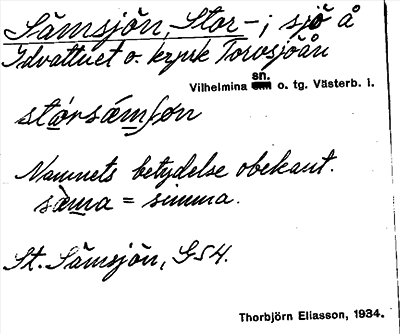 Sämsjön, Stor-; sjö å
Idvattnet o. krpsk Torvsjöån
sn.
Vilhelmina o. tg. Västerb. l.
stórsä́mʃøn
Namnets betydelse obekant.
sä̀ma = simma.
St. Sämsjön, GS4.
Thorbjörn Eliasson, 1934.